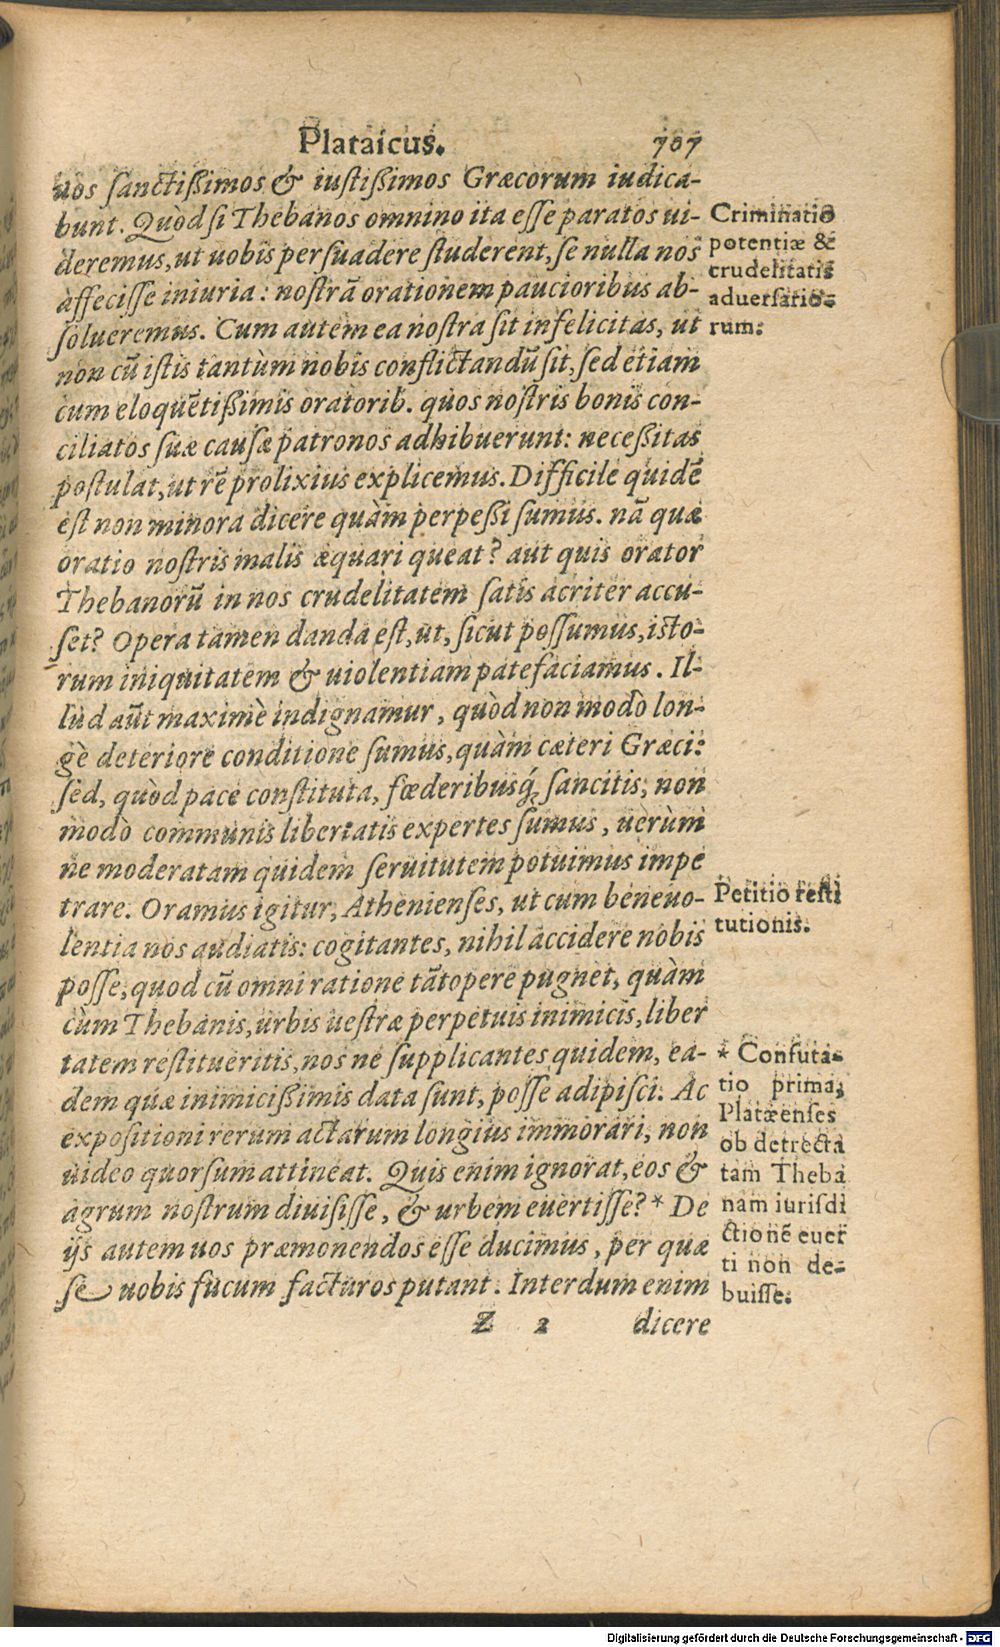 Plataicus. 707
uos sanctißimos & iustißimos Græcorum iudica-
bunt. Quòd si Thebanos omnino ita esse paratos ui-
deremus, ut uobis persuadere studerent, se nulla nos
affecisse iniuria: nostrā orationem paucioribus ab-
solueremus. Cum autem ea nostra sit infelicitas, ut
non cū istis tantùm nobis conflictandū sit, sed etiam
cum eloquētißimis oratorib. quos nostris bonis con-
ciliatos suæ causæ patronos adhibuerunt: necessitas
postulat, ut rē prolixius explicemus. Difficile quidē
est non minora dicere quàm perpeßi sumus. nā quæ
oratio nostris malis æquari queat? aut quis orator
Thebanorū in nos crudelitatem satis acriter accu-
set? Opera tamen danda est, ut, sicut possumus, isto-
rum iniquitatem & uiolentiam patefaciamus. Il-
lud aūt maximè indignamur, quòd non modò lon-
gè deteriore conditione sumus, quàm cæteri Græci:
sed, quòd pace constituta, fœderibusq́; sancitis, non
modò communis libertatis expertes sumus, uerùm
ne moderatam quidem seruitutem potuimus impe
trare. Oramus igitur, Athenienses, ut cum beneuo-
lentia nos audiatis: cogitantes, nihil accidere nobis
posse, quod cū omni ratione tātopere pugnet, quàm
cùm Thebanis, urbis uestræ perpetuis inimicis, liber
tatem restitueritis, nos ne supplicantes quidem, ea-
dem quæ inimicißimis data sunt, posse adipisci. Ac
expositioni rerum actarum longius immorari, non
uideo quorsum attineat. Quis enim ignorat, eos &
agrum nostrum diuisisse, & urbem euertisse? * De
ijs autem uos præmonendos esse ducimus, per quæ
se uobis fucum facturos putant. Interdum enim
Z 2 dicere
Criminatio
potentiæ &
crudelitatis
aduersario-
rum:
Petitio resti
tutionis.
* Confuta-
tio prima,
Platæenses
ob detrecta
tam Theba
nam iurisdi
ctionē euer
ti non de-
buisse.
Digitalisierung gefördert durch die Deutsche Forschungsgemeinschaft - DFG